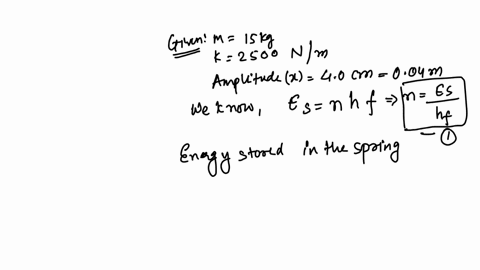 Given: M = 15kg
K = 2500 N/m
Amplitude(x) = 4.0 cm = 0.04m
We know, Es = nhf ⇒ n = Es/hf — ①
Energy stored in the spring